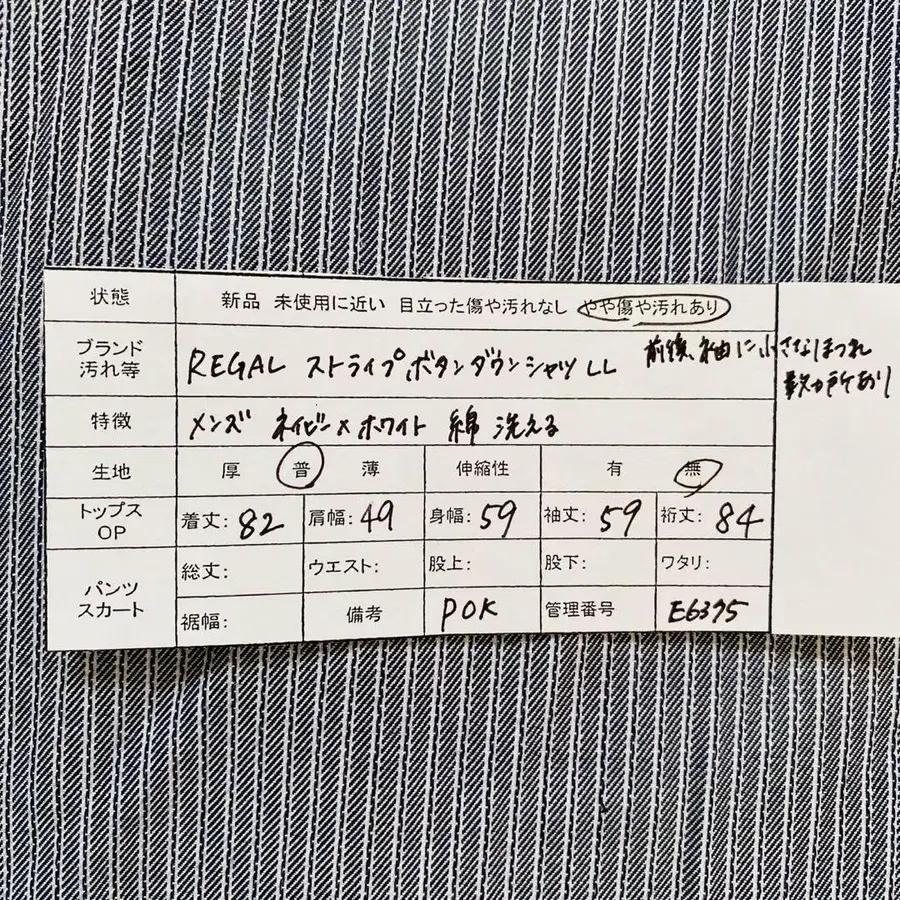 状態 新品 未使用に近い 目立った傷や汚れなし やや傷や汚れあり
ブランド
汚れ等
REGAL ストライプボタンダウンシャツ LL
前後、袖に小さなほつれ
数カ所あり
特徴 メンズ ネイビー×ホワイト 綿 洗える
生地 厚 普 薄 伸縮性 有 無
トップス
OP
着丈: 82 肩幅: 49 身幅: 59 袖丈: 59 裄丈: 84
パンツ
スカート
総丈: ウエスト: 股上: 股下: ワタリ:
裾幅: 備考 POK 管理番号 E6375